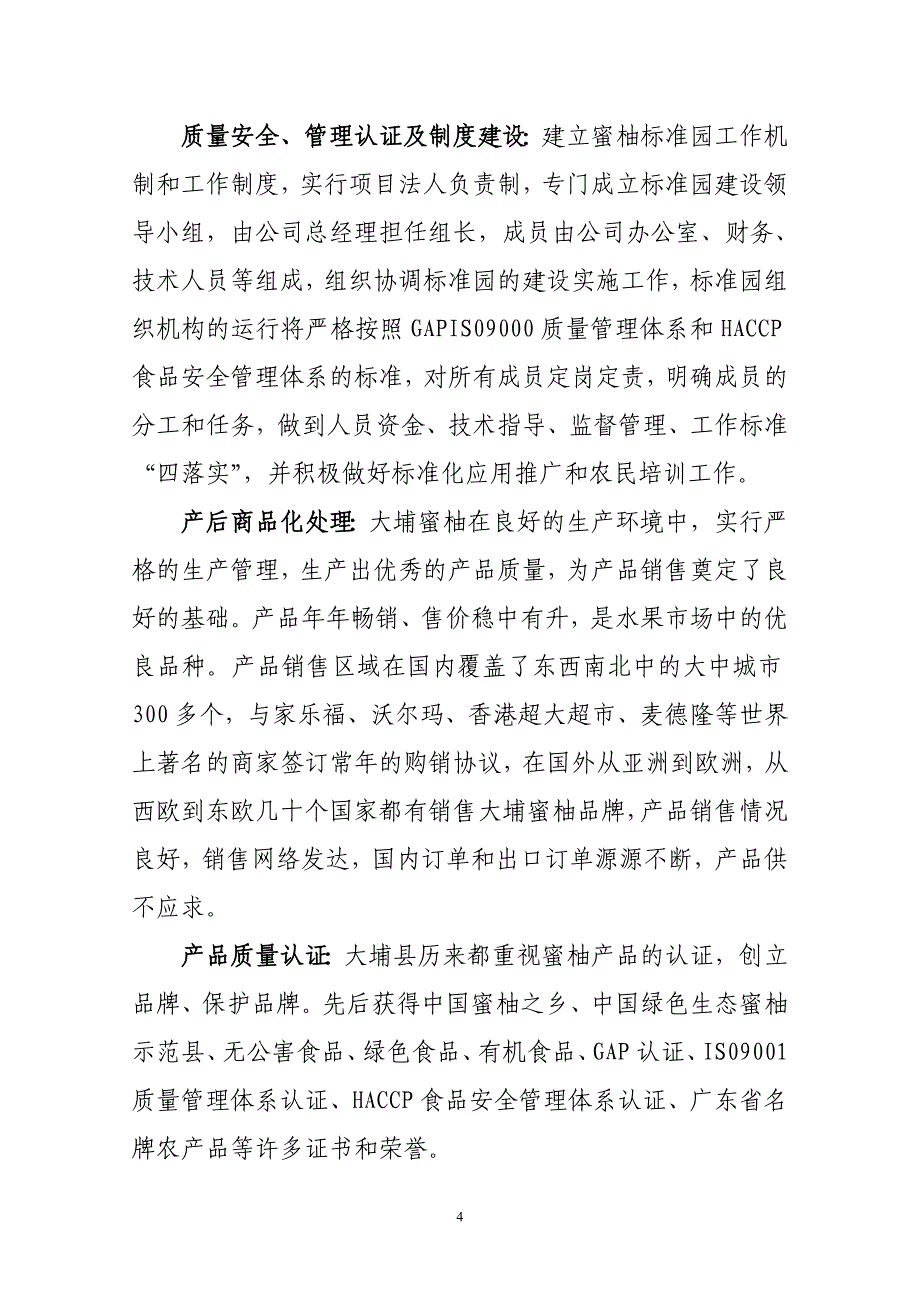 质量安全、管理认证及制度建设：建立蜜柚标准园工作机
制和工作制度，实行项目法人负责制，专门成立标准园建设领
导小组，由公司总经理担任组长，成员由公司办公室、财务、
技术人员等组成，组织协调标准园的建设实施工作，标准园组
织机构的运行将严格按照 GAPIS09000 质量管理体系和 HACCP
食品安全管理体系的标准，对所有成员定岗定责，明确成员的
分工和任务，做到人员资金、技术指导、监督管理、工作标准
“四落实”，并积极做好标准化应用推广和农民培训工作。
产后商品化处理：大埔蜜柚在良好的生产环境中，实行严
格的生产管理，生产出优秀的产品质量，为产品销售奠定了良
好的基础。产品年年畅销、售价稳中有升，是水果市场中的优
良品种。产品销售区域在国内覆盖了东西南北中的大中城市
300 多个，与家乐福、沃尔玛、香港超大超市、麦德隆等世界
上著名的商家签订常年的购销协议，在国外从亚洲到欧洲，从
西欧到东欧几十个国家都有销售大埔蜜柚品牌，产品销售情况
良好，销售网络发达，国内订单和出口订单源源不断，产品供
不应求。
产品质量认证：大埔县历来都重视蜜柚产品的认证，创立
品牌、保护品牌。先后获得中国蜜柚之乡、中国绿色生态蜜柚
示范县、无公害食品、绿色食品、有机食品、GAP 认证、IS09001
质量管理体系认证、HACCP 食品安全管理体系认证、广东省名
牌农产品等许多证书和荣誉。
4